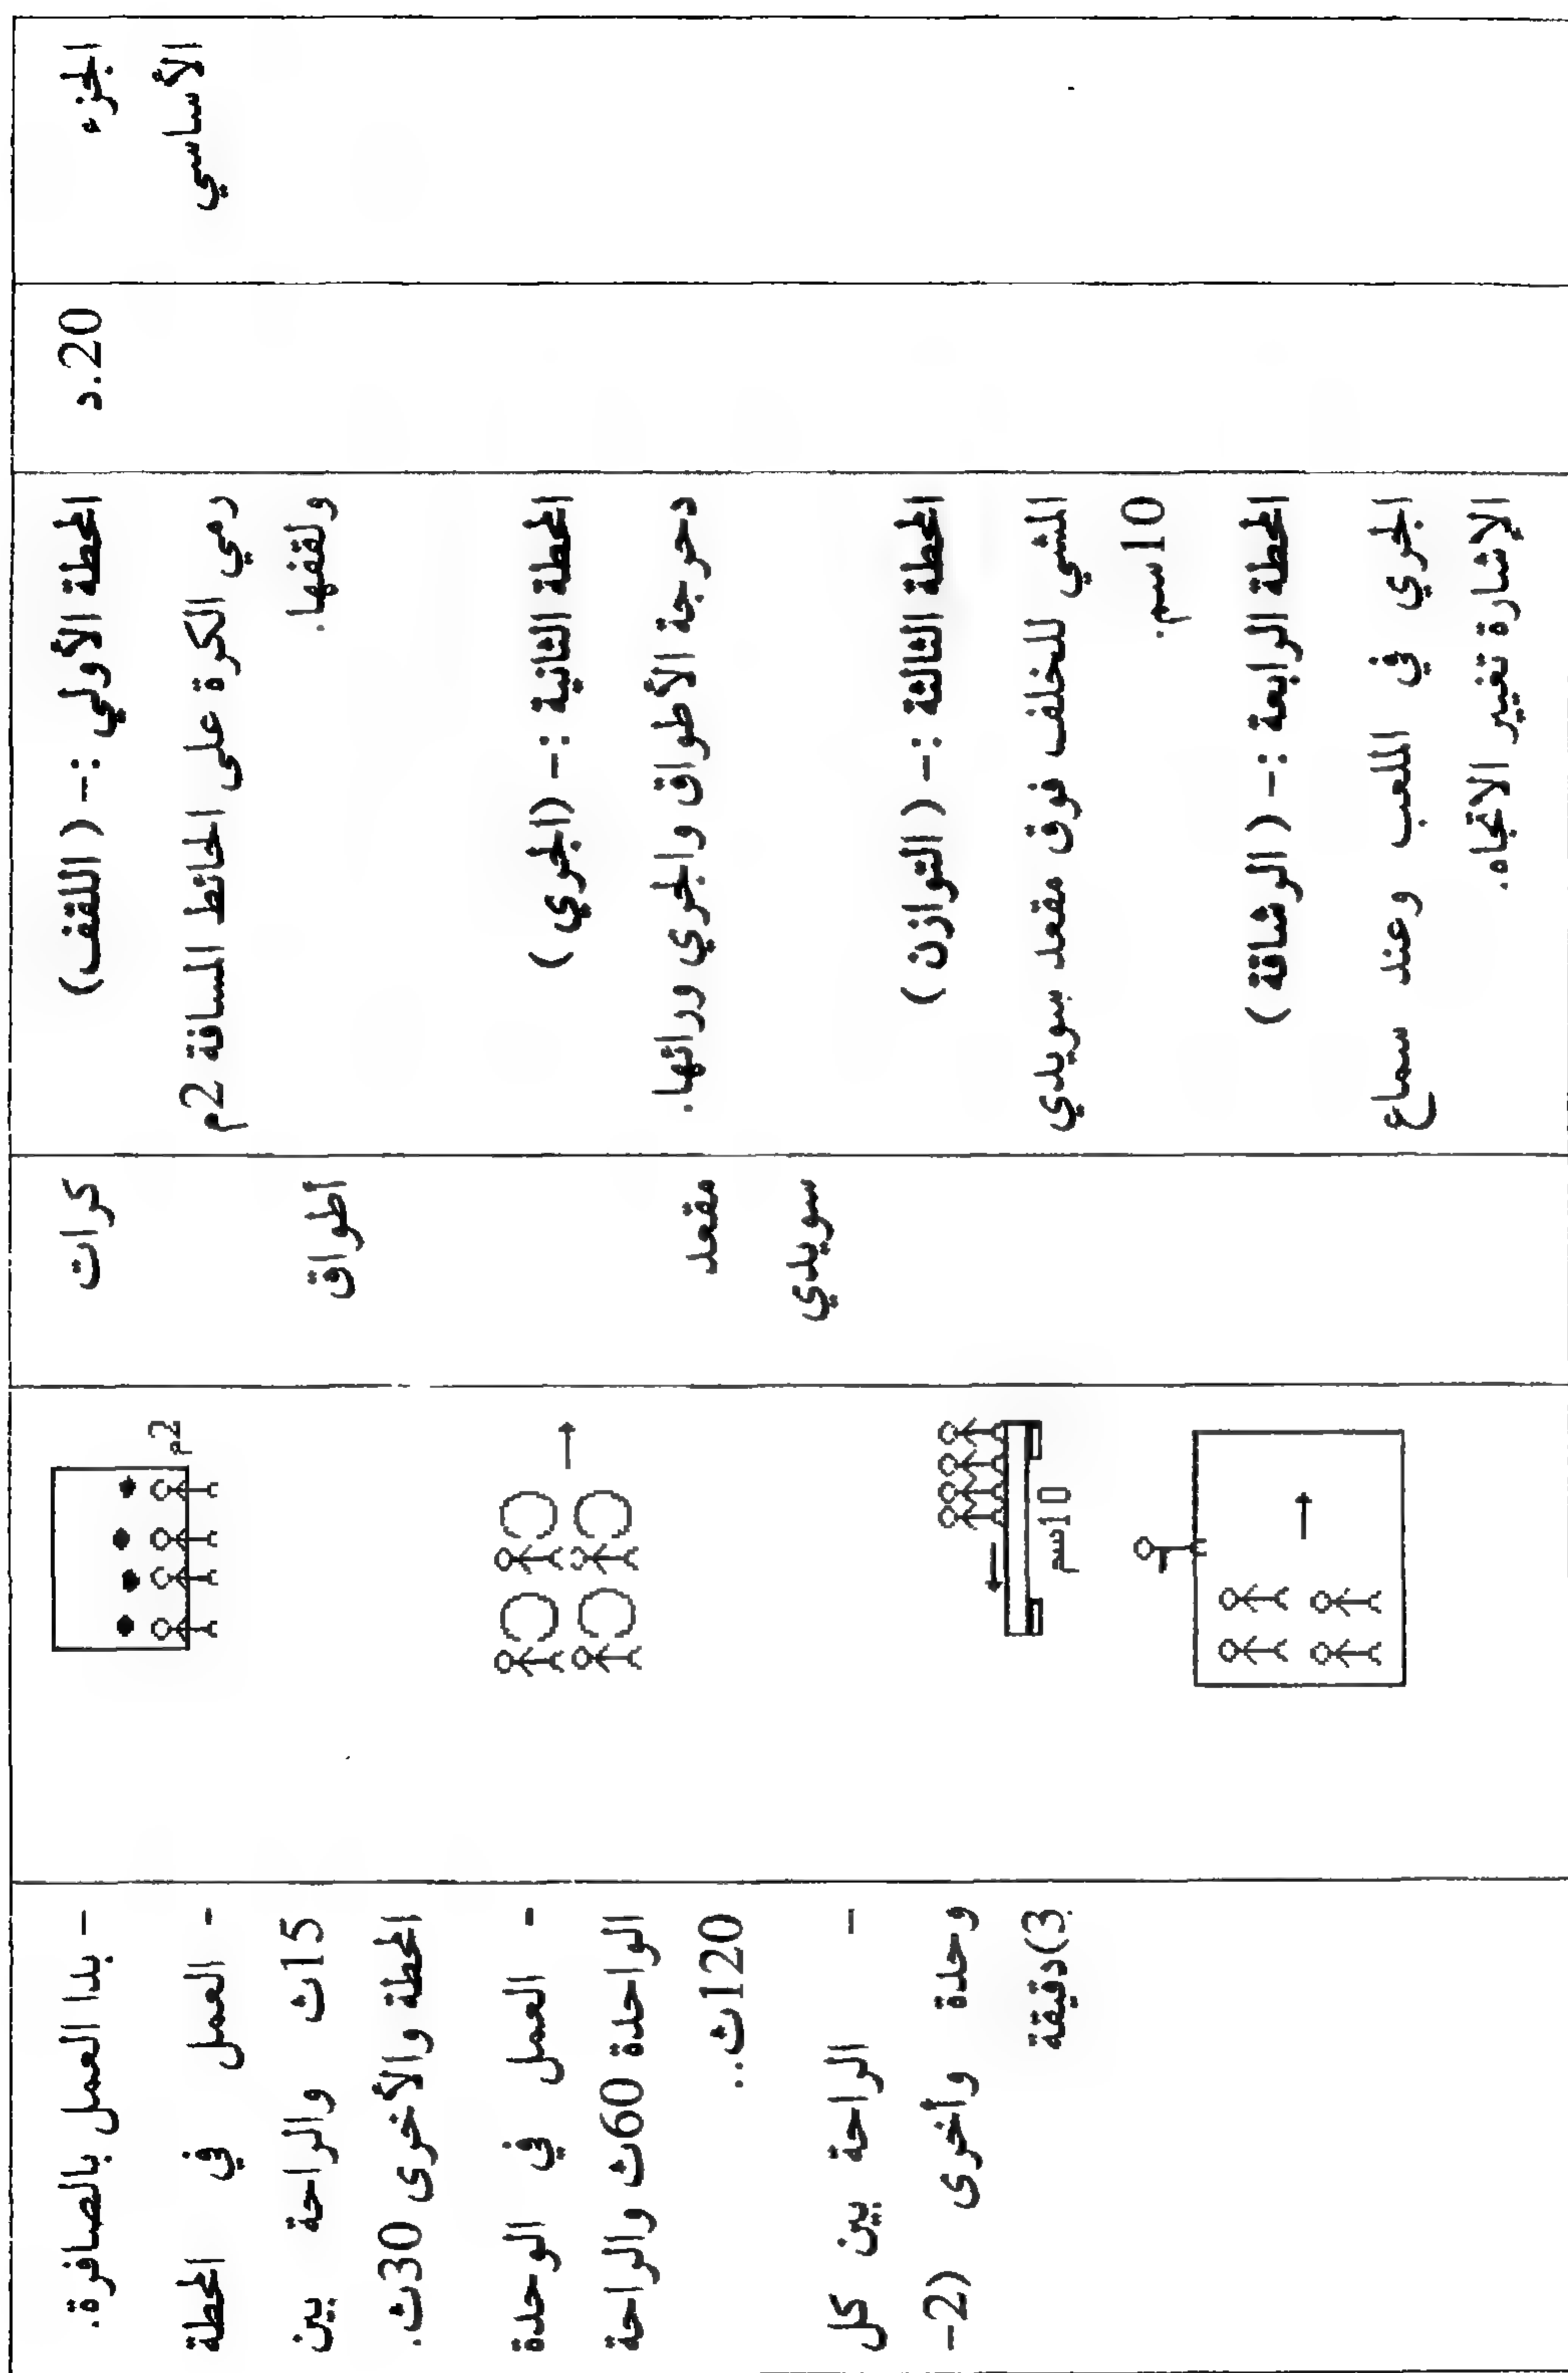 الجزء
الأساسي
20.د
المحطة الأولي :– ( اللقف)
رمي الكرة على الحائط المسافة 2م
ولقفها.
المحطة الثانية :– (الجري )
دحرجة الأطواق والجري ورائها.
المحطة الثالثة :– ( التوازن )
المشي للخلف فوق مقعد سويدي
10سم.
المحطة الرابعة :– ( الرشاقة )
الجري في الملعب وعند سماع
الإشارة تغيير الاتجاه.
كرات
أطواق
مقعد
سويدي
2م
10سم
– بدا العمل بالصافرة.
- العمل في المحطة
15ث والراحة بين
المحطة والأخرى 30ث.
- العمل في الوحدة
الواحدة 60ث والراحة
120ث..
- الراحة بين كل
وحدة وأخرى (2-
3)دقيقة